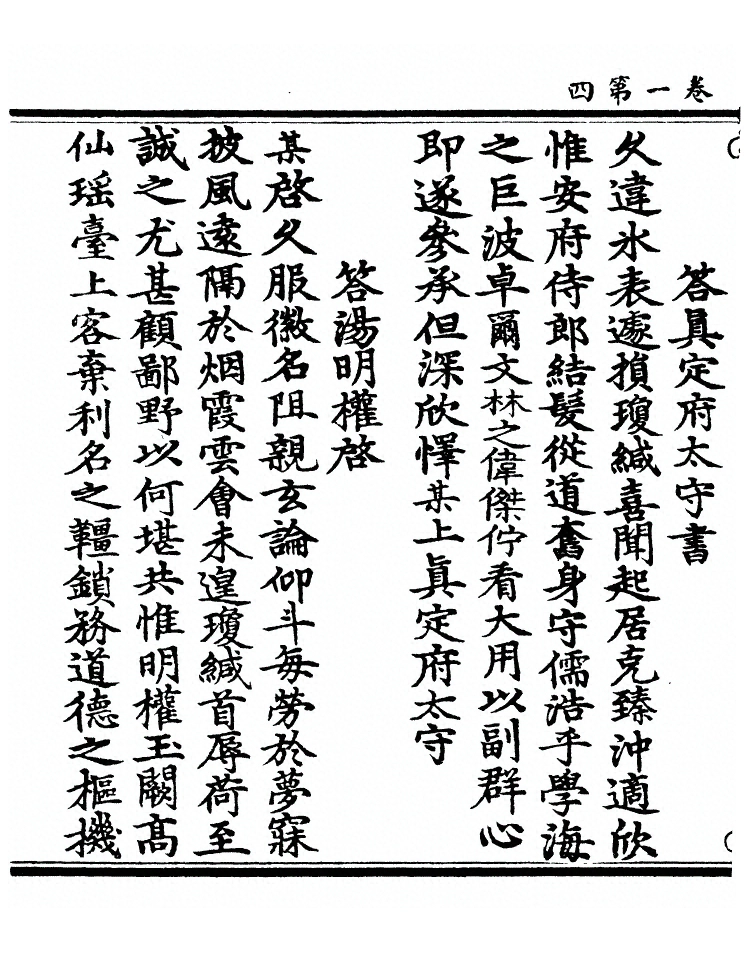 卷一第四
答眞定府太守書
久違氷表遽損瓊緘喜聞起居克臻沖適欣
惟安府侍郎結髮從道奮身守儒浩乎學海
之巨波卓爾文林之偉傑佇看大用以副群心
即遂參承但深欣懌某上眞定府太守
答湯明權啓
某啓久服徽名阻親玄論仰斗每勞於夢寐
披風遠隔於烟霞雲會未遑瓊緘首辱荷至
誠之尤甚顧鄙野以何堪共惟明權玉闕高
仙瑶臺上客棄利名之韁鎖務道德之樞機